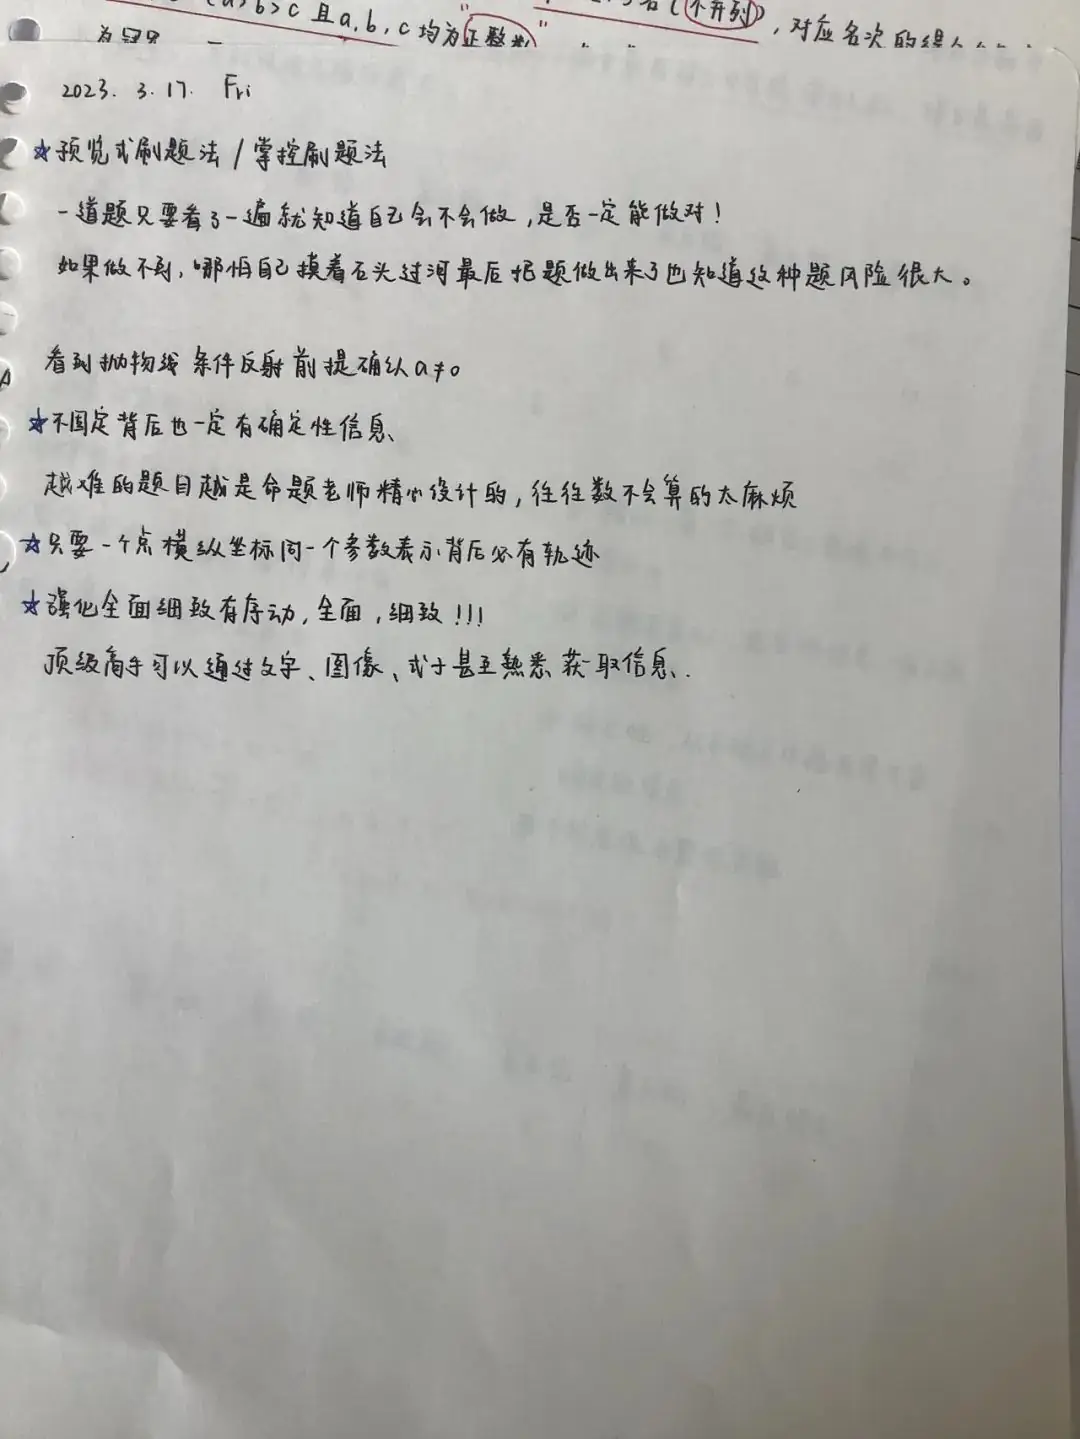 a>b>c 且a,b,c均为正整数
(不并列),对应名次的得
2023. 3. 17. Fri
☆预览式刷题法/掌控刷题法
一道题只要看了一遍就知道自己会不会做,是否一定能做对!
如果做不到,哪怕自己摸着石头过河最后把题做出来了也知道这种题风险很大。
看到抛物线条件反射前提确认a≠0
☆不固定背后也一定有确定性信息、
越难的题目越是命题老师精心设计的,往往数不会算的太麻烦
☆只要一个点横纵坐标同一个参数表示背后必有轨迹
☆强化全面细致有序动,全面,细致!!!
顶级高手可以通过文字、图像、式子甚至熟悉获取信息.